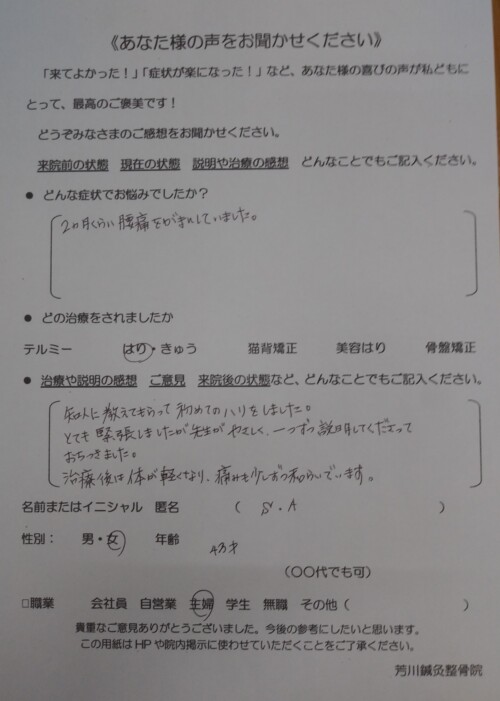 《あなた様の声をお聞かせください》
「来てよかった！」「症状が楽になった！」など、あなた様の喜びの声が私どもに
とって、最高のご褒美です！
どうぞみなさまのご感想をお聞かせください。
来院前の状態　現在の状態　説明や治療の感想　どんなことでもご記入ください。
● どんな症状でお悩みでしたか？
2ヵ月くらい腰痛をがまんしていました。
● どの治療をされましたか
テルミー　はり・きゅう　猫背矯正　美容はり　骨盤矯正
● 治療や説明の感想　ご意見　来院後の状態など、どんなことでもご記入ください。
知人に教えてもらって初めてのハリをしました。
とても緊張しましたが先生がやさしく、一つずつ説明してくださって
おちつきました。
治療後は体が軽くなり、痛みも少しずつ和らいでいます。
名前またはイニシャル　匿名　（　S.A　）
性別：　男・女　年齢　43才
（〇〇代でも可）
□職業　会社員　自営業　主婦　学生　無職　その他（　）
貴重なご意見ありがとうございました。今後の参考にしたいと思います。
この用紙はHPや院内掲示に使わせていただくことをご了承ください。
芳川鍼灸整骨院